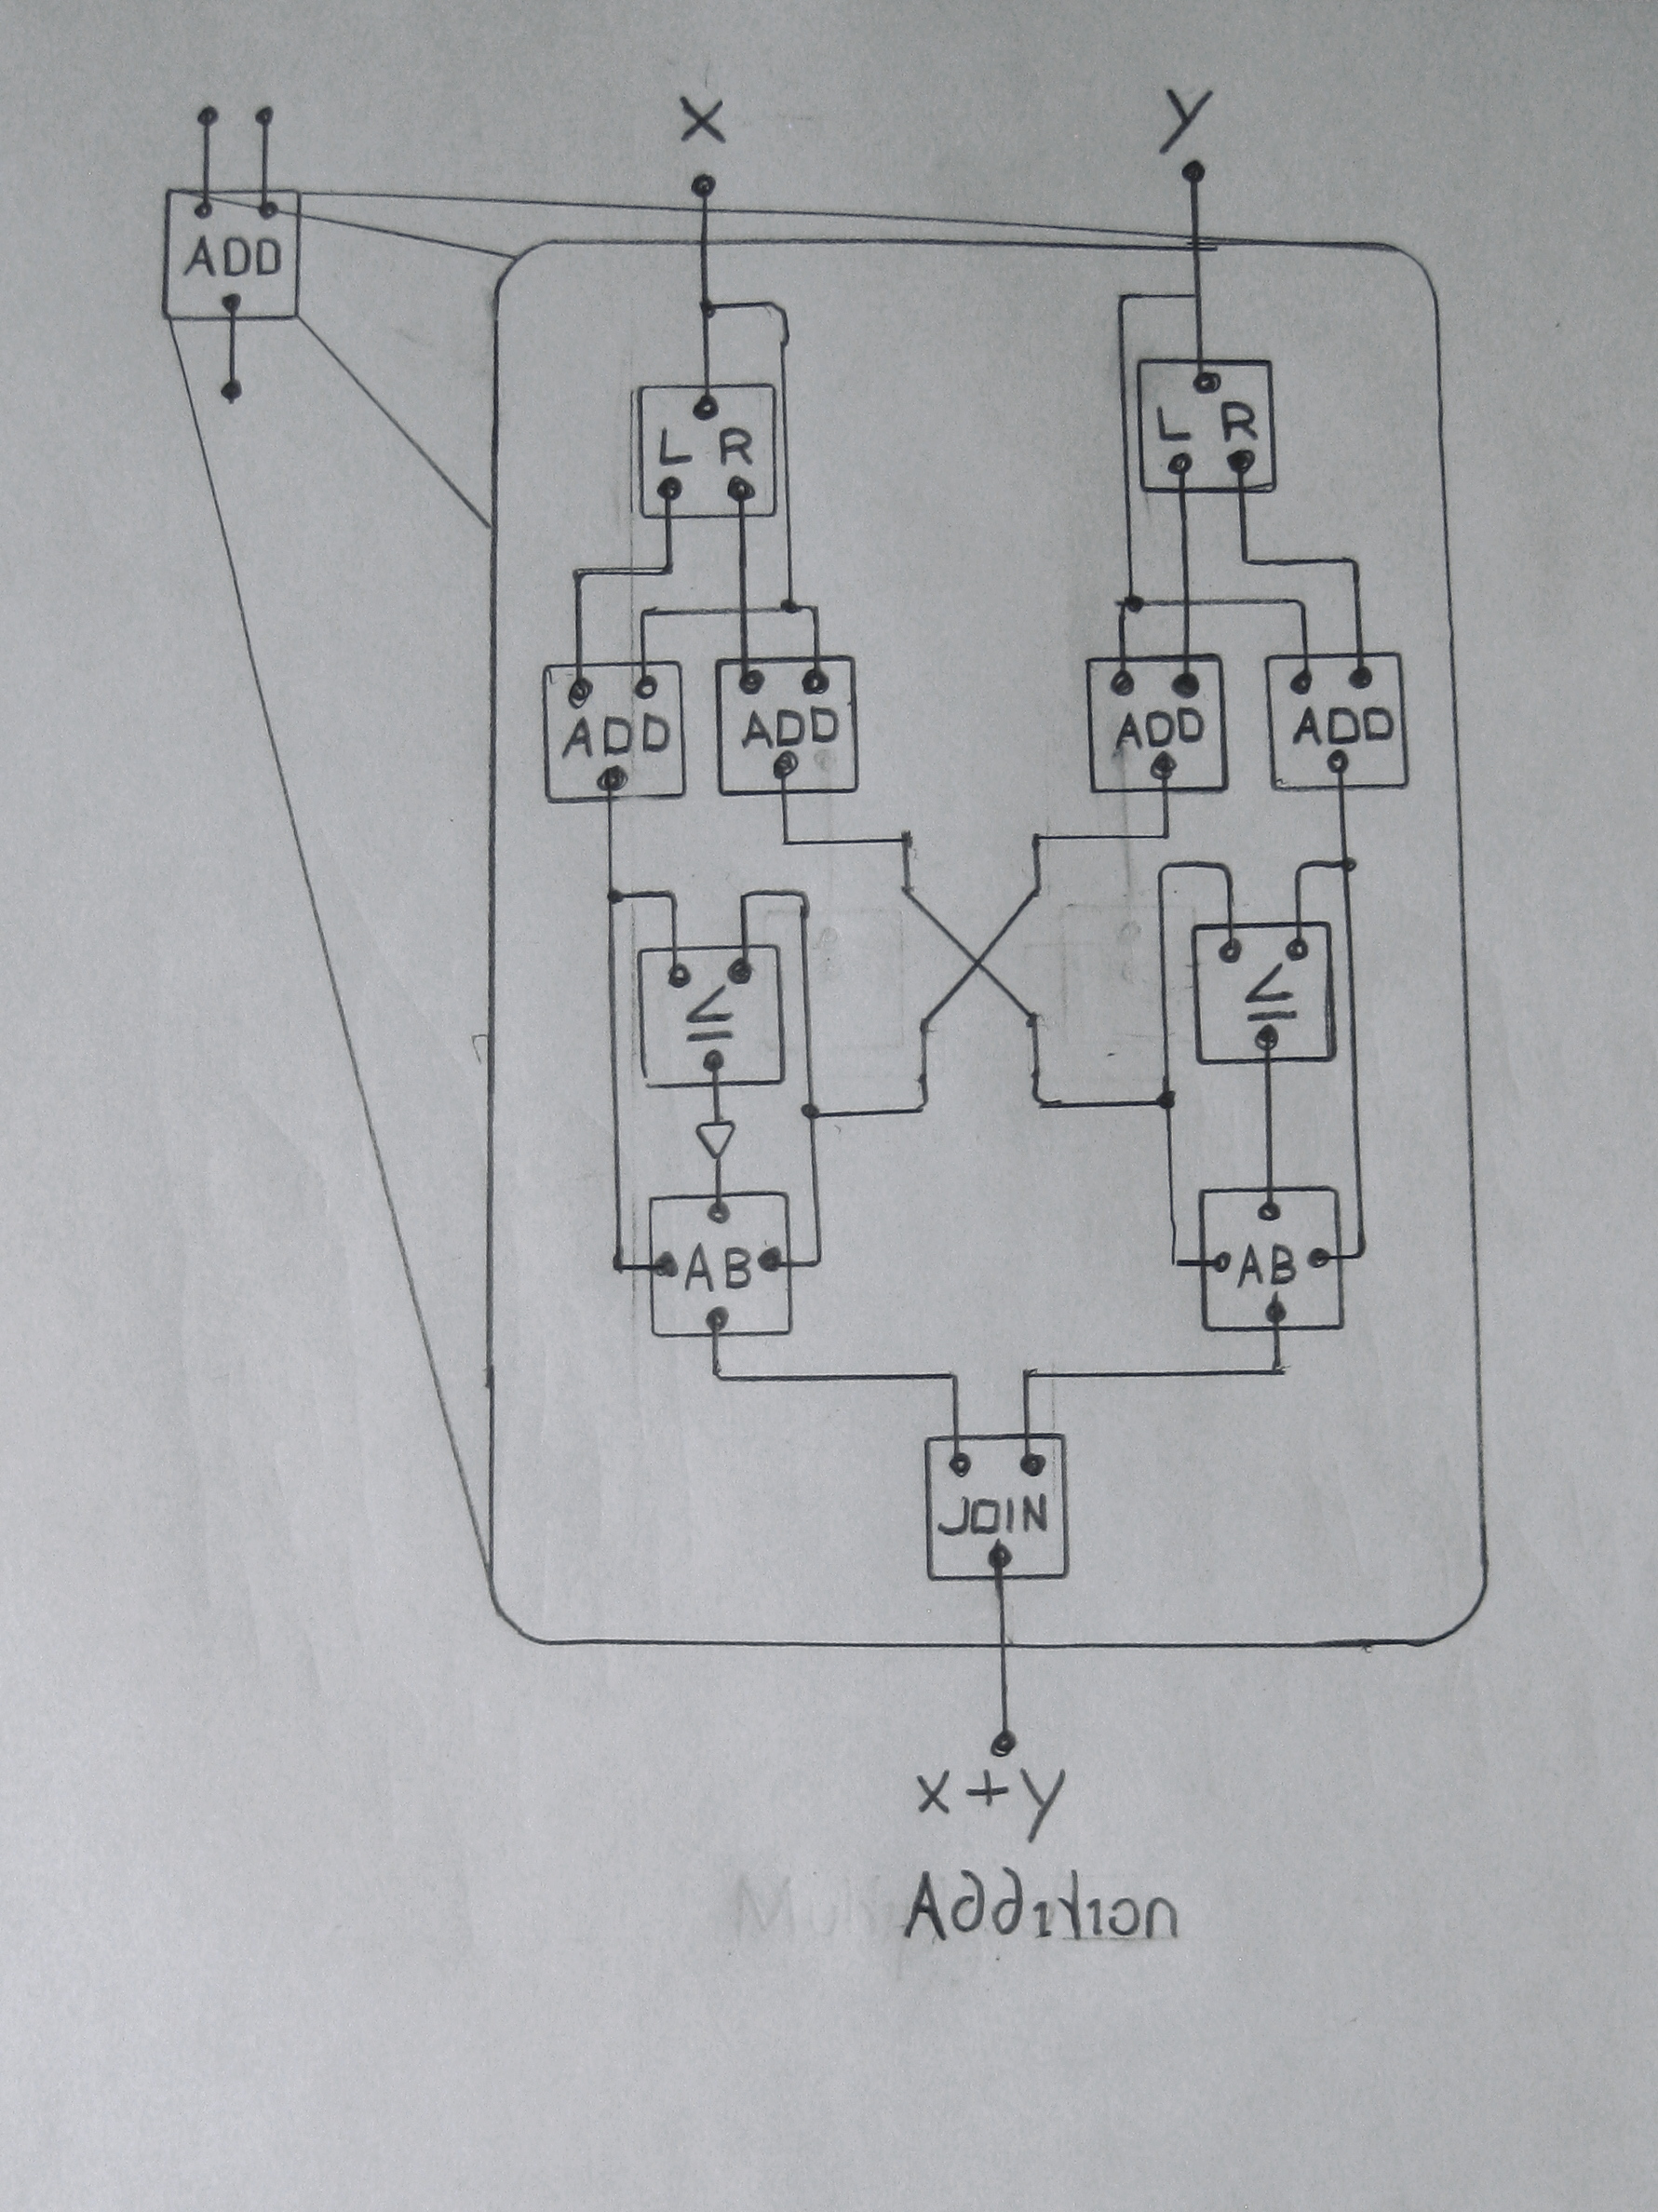 X Y
ADD
L R L R
ADD ADD ADD ADD
≤ ≤
AB AB
JOIN
x+y
Addition